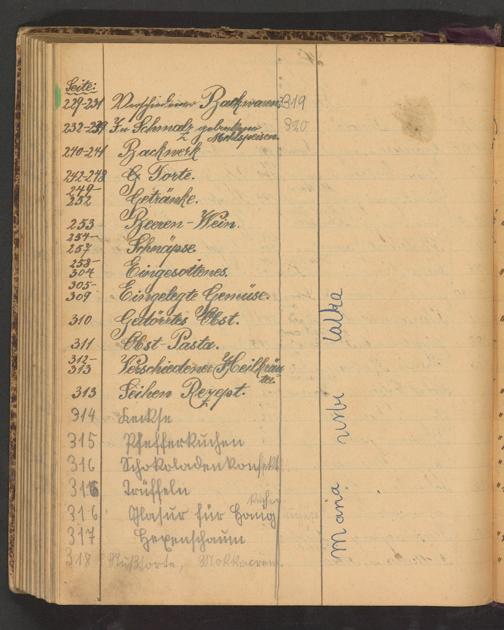 Seite:
229-231 Verschiedener Backwaren 319
232-239 In Schmalz gebackene Mehlspeisen 320
240-241 Backwerk
242-248 & Torte.
249-252 Getränke.
253 Beeren-Wein.
254-257 Schnäpse
258-304 Eingesottenes.
305-309 Eingelegte Gemüse.
310 Gedörrtes Obst.
311 Obst Pasta.
312-313 Verschiedener Heilkräuter.
313 Seifen Rezept.
314 Kerkse
315 Pfefferkuchen
316 Schokoladenkonfekt
316 Trüffeln
316 Glasur für Honig kuchen
317 Hexenschaum
318 Nußtorte, Mokkacreme
Maria